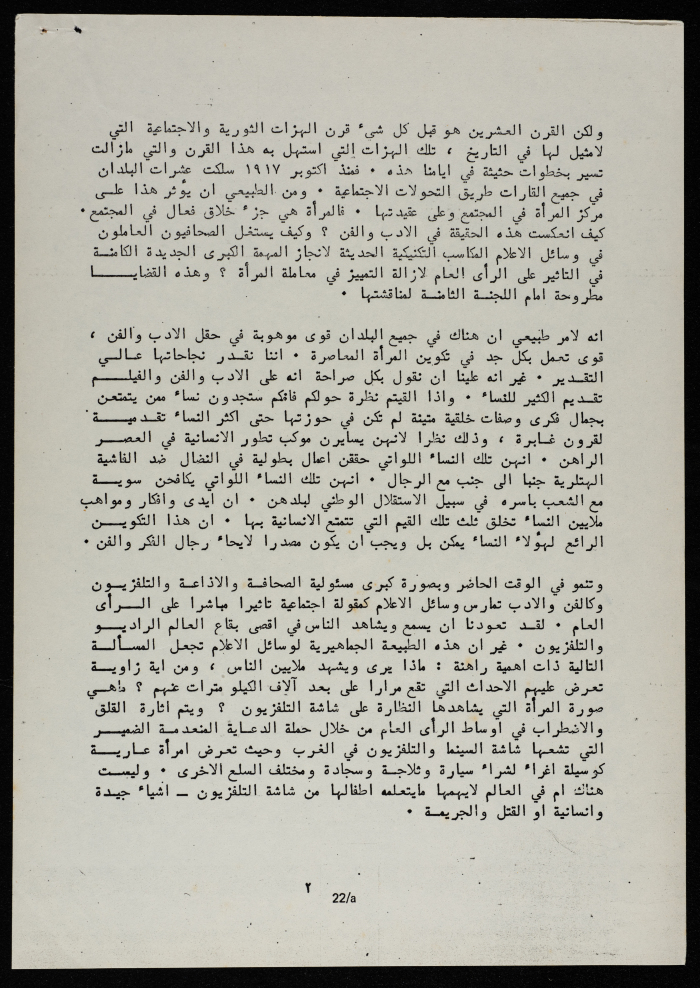 ولكن القرن العشرين هو قبل كل شيء قرن الهزات الثورية والاجتماعية التي
لامثيل لها في التاريخ ، تلك الهزات التي استهل به هذا القرن والتي مازالت
تسير بخطوات حثيثة في ايامنا هذه ٠ فمنذ اكتوبر ١٩١٧ سلكت عشرات البلدان
في جميع القارات طريق التحولات الاجتماعية ٠ ومن الطبيعي ان يؤثر هذا على
مركز المرأة في المجتمع وعلى عقيدتها ٠ فالمرأة هي جزء خلاق فعال في المجتمع ٠
كيف انعكست هذه الحقيقة في الادب والفن ؟ وكيف يستغل الصحافيون العاملون
في وسائل الاعلام المكاسب التكنيكية الحديثة لانجاز المهمة الكبرى الجديدة الكامنة
في التاثير على الرأى العام لازالة التمييز في معاملة المرأة ؟ وهذه القضايا
مطروحة امام اللجنة الثامنة لمناقشتها ٠
انه لامر طبيعي ان هناك في جميع البلدان قوى موهوبة في حقل الادب والفن ،
قوى تعمل بكل جد في تكوين المرأة المعاصرة ٠ اننا نقدر نجاحاتها عالي
التقدير ٠ غير انه علينا ان نقول بكل صراحة انه على الادب والفن والفيلم
تقديم الكثير للنساء ٠ واذا القيتم نظرة حولكم فانكم ستجدون نساء ممن يتمتعن
بجمال فكرى وصفات خلقية متينة لم تكن في حوزتها حتى اكثر النساء تقدمية
لقرون غابرة ، وذلك نظرا لانهن يسايرن موكب تطور الانسانية في العصر
الراهن ٠ انهن تلك النساء اللواتي حققن اعمال بطولية في النضال ضد الفاشية
الهتلرية جنبا الى جنب مع الرجال ٠ انهن تلك النساء اللواتي يكافحن سوية
مع الشعب باسره في سبيل الاستقلال الوطني لبلدهن ٠ ان ايدى وافكار ومواهب
ملايين النساء تخلق ثلث تلك القيم التي تتمتع الانسانية بها ٠ ان هذا التكوين
الرائع لهؤلاء النساء يمكن بل ويجب ان يكون مصدرا لايحاء رجال الفكر والفن ٠
وتنمو في الوقت الحاضر وبصورة كبرى مسئولية الصحافة والاذاعة والتلفزيون
وكالفن والادب تمارس وسائل الاعلام كمقولة اجتماعية تاثيرا مباشرا على الرأى
العام ٠ لقد تعودنا ان يسمع ويشاهد الناس في اقصى بقاع العالم الراديو
والتلفزيون ٠ غير ان هذه الطبيعة الجماهيرية لوسائل الاعلام تجعل المسألة
التالية ذات اهمية راهنة : ماذا يرى ويشهد ملايين الناس ، ومن اية زاوية
تعرض عليهم الاحداث التي تقع مرارا على بعد آلاف الكيلو مترات عنهم ؟ ماهي
صورة المرأة التي يشاهدها النظارة على شاشة التلفزيون ؟ ويتم اثارة القلق
والاضطراب في اوساط الرأى العام من خلال حملة الدعاية المنعدمة الضمير
التي تشعها شاشة السينما والتلفزيون في الغرب وحيث تعرض امرأة عارية
كوسيلة اغراء لشراء سيارة وثلاجة وسجادة ومختلف السلع الاخرى ٠ وليست
هناك ام في العالم لايهمها مايتعلمه اطفالها من شاشة التلفزيون ــ اشياء جيدة
وانسانية او القتل والجريمة ٠
٢
22/a